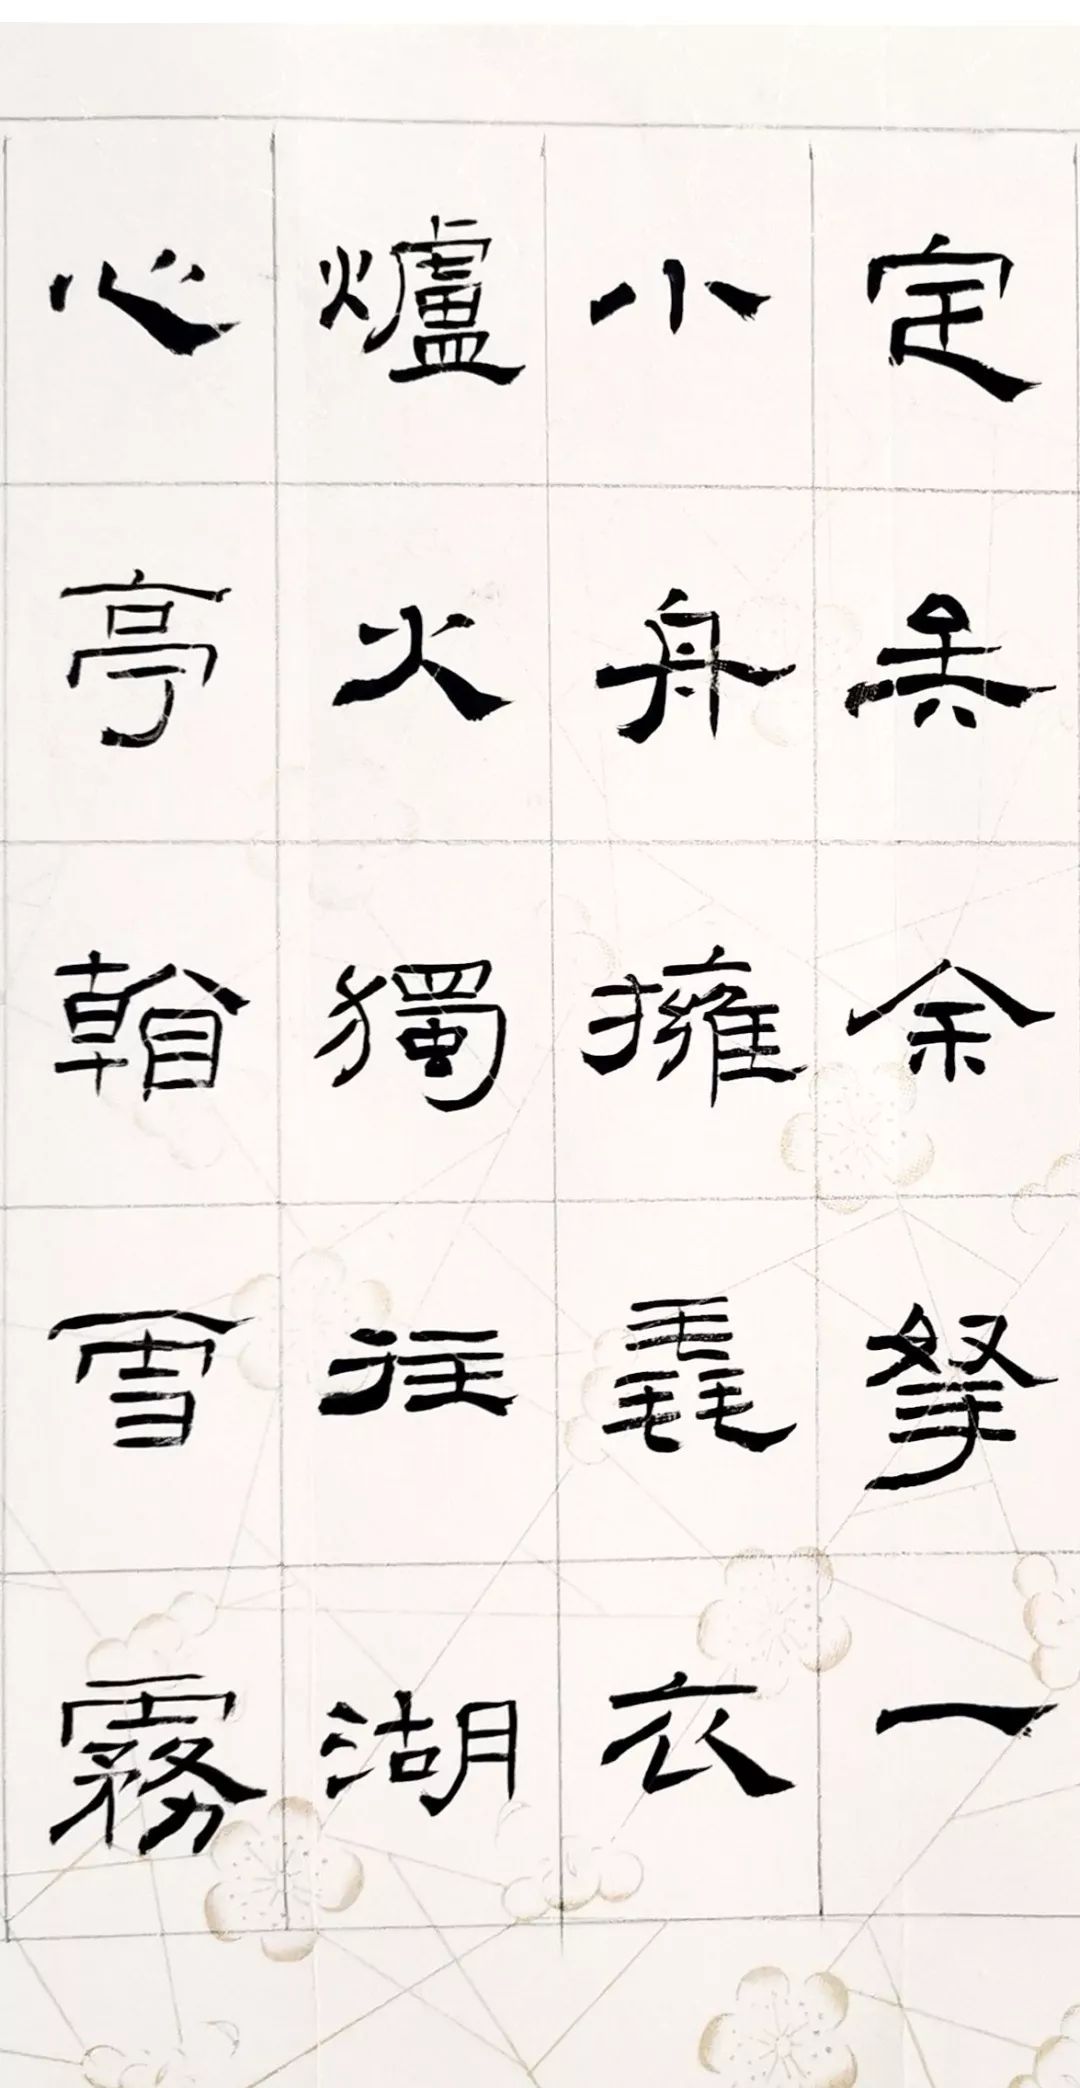 定矣余拏一
小舟擁毳衣
爐火獨往湖
心亭看雪霧